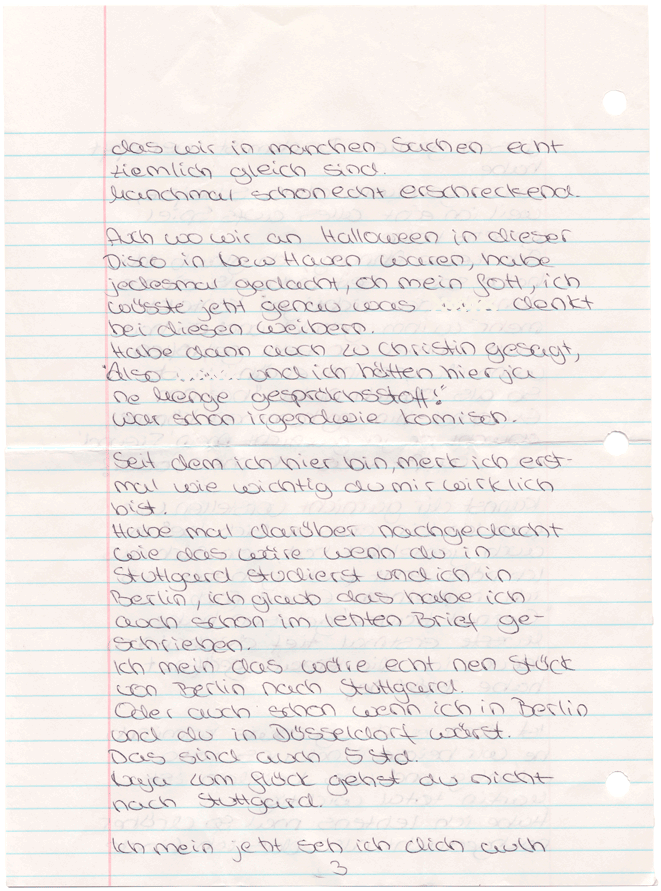 das wir in manchen Sachen echt
ziemlich gleich sind.
Manchmal schon echt erschreckend.
Auch wo wir an Halloween in dieser
Disco in New Haven waren, habe
jedesmal gedacht, oh mein Gott, ich
wüsste jetzt genau was ..... denkt
bei diesen Weibern.
Habe dann auch zu Christin gesagt,
"Also ..... und ich hätten hier ja
ne Menge gesprächsstoff!"
War schon irgendwie komisch.
Seit dem ich hier bin, merk ich erst-
mal wie wichtig du mir wirklich
bist.
Habe mal darüber nachgedacht
wie das wäre wenn du in
Stuttgard studierst und ich in
Berlin, ich glaub das habe ich
auch schon im letzten Brief ge-
schrieben.
Ich mein das wäre echt nen Stück
von Berlin nach Stuttgard.
Oder auch schon wenn ich in Berlin
und du in Düsseldorf wärst.
Das sind auch 5 Std.
Naja zum Glück gehst du nicht
nach Stuttgard.
Ich mein jetzt seh ich dich auch
3